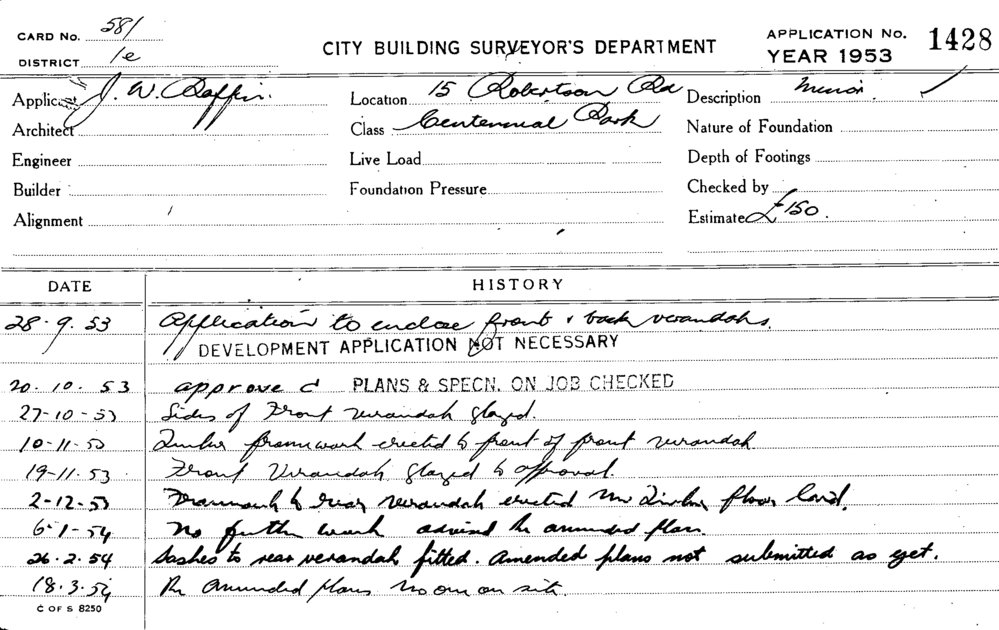 CARD No. 581
DISTRICT 1e
CITY BUILDING SURVEYOR'S DEPARTMENT
APPLICATION No. 1428
YEAR 1953
Applicant J. W.
Location 15 Robertson Rd
Description Minor
Architect
Class Centennial Park
Nature of Foundation
Engineer
Live Load
Depth of Footings
Builder
Foundation Pressure
Checked by
Alignment
Estimate £150.
DATE HISTORY
28.9.53 Application to enclose front & back verandahs.
DEVELOPMENT APPLICATION NOT NECESSARY
20.10.53 approved PLANS & SPECN. ON JOB CHECKED
27-10-53 Sides of Front verandah glazed.
10-11-53 Timber framework erected to front of front verandah
19-11.53 Front Verandah glazed to approval.
2-12-53 Framework to rear verandah erected Timber floor laid.
6-1-54 No further work advised Re amended plan.
26.2.54 Sashes to rear verandah fitted. Amended plans not submitted as yet.
18.3.54 Re amended plans no one on site.
C OF S 8250